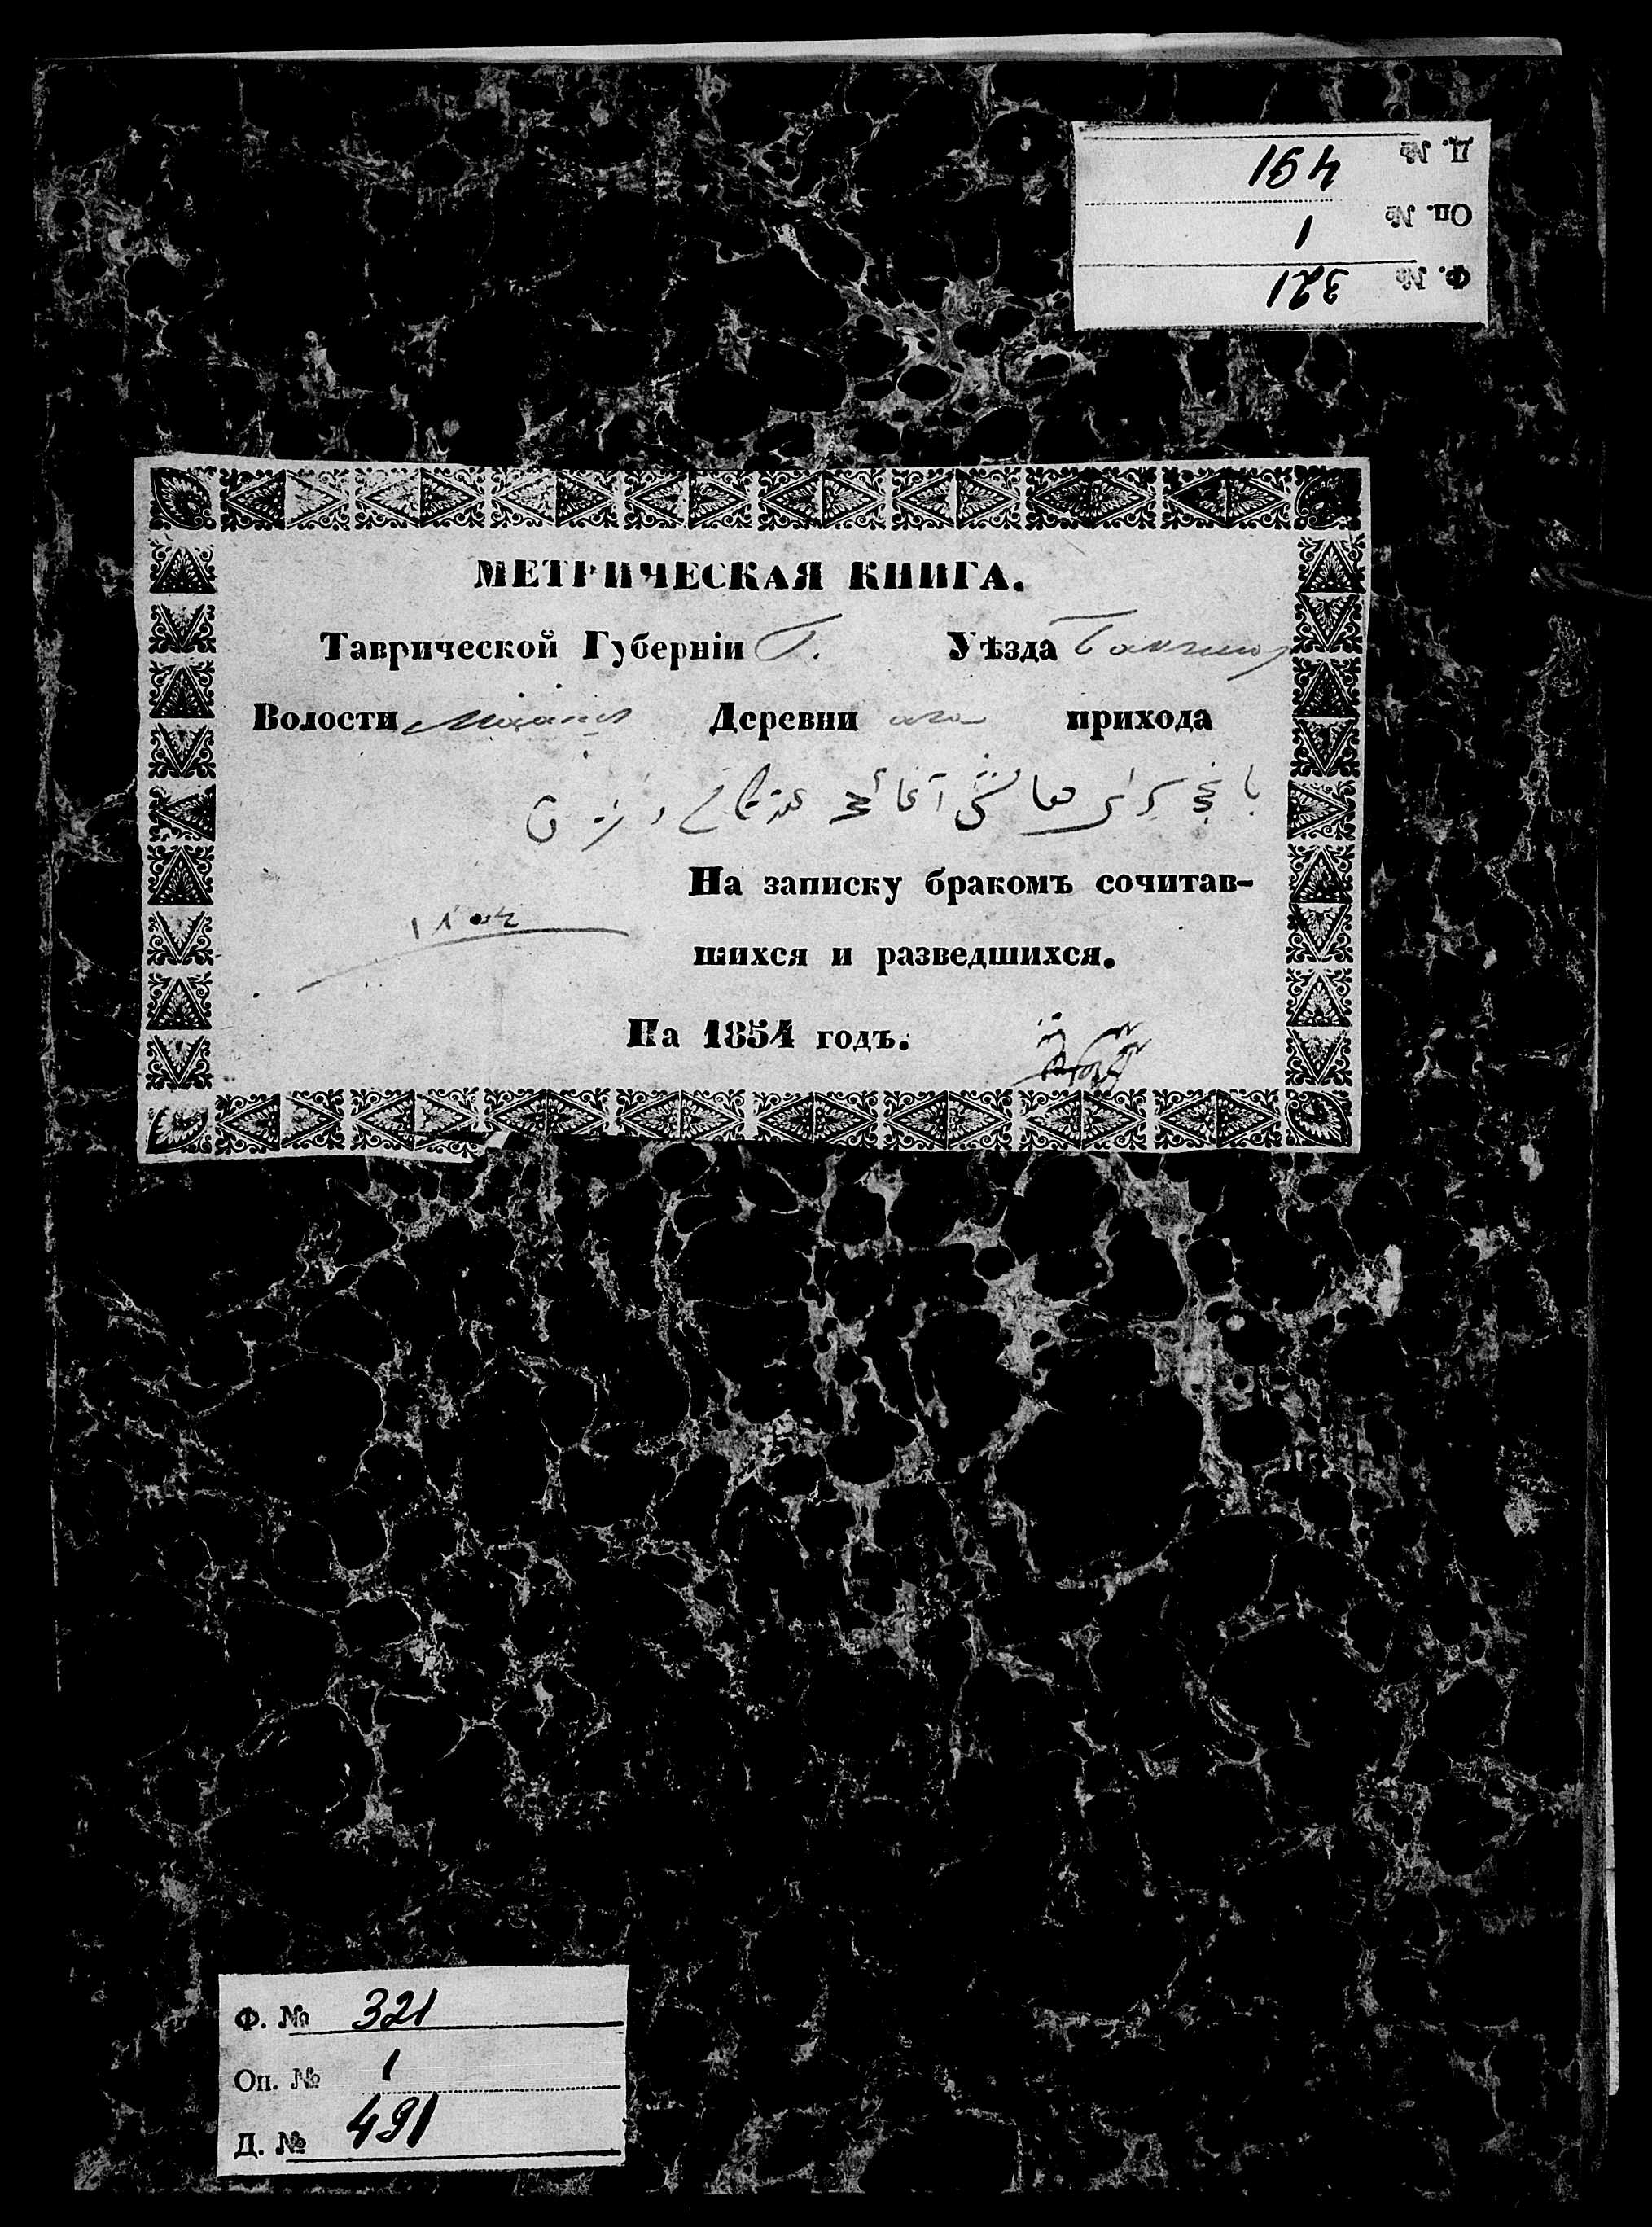 Д. № 491
Оп. № 1
Ф. № 321
МЕТРИЧЕСКАЯ КНИГА.
Таврической Губерніи Г. Уѣзда
Волости Деревни ага прихода
На записку бракомъ сочитав-
шихся и разведшихся.
На 1854 годъ.
Ф. № 321
Оп. № 1
Д. № 491